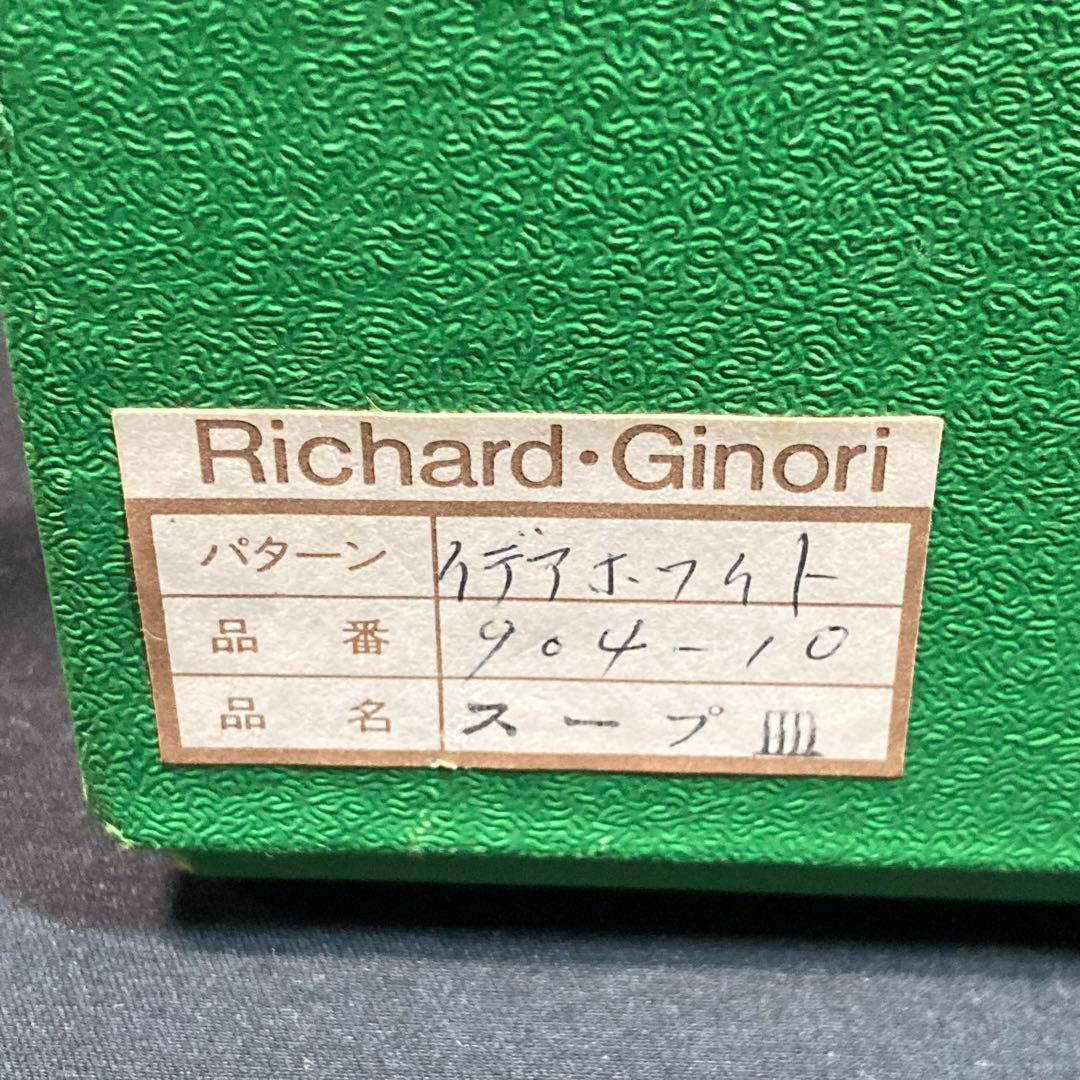 Richard・Ginori
パターン イデアホワイト
品番 904-10
品名 スープ皿